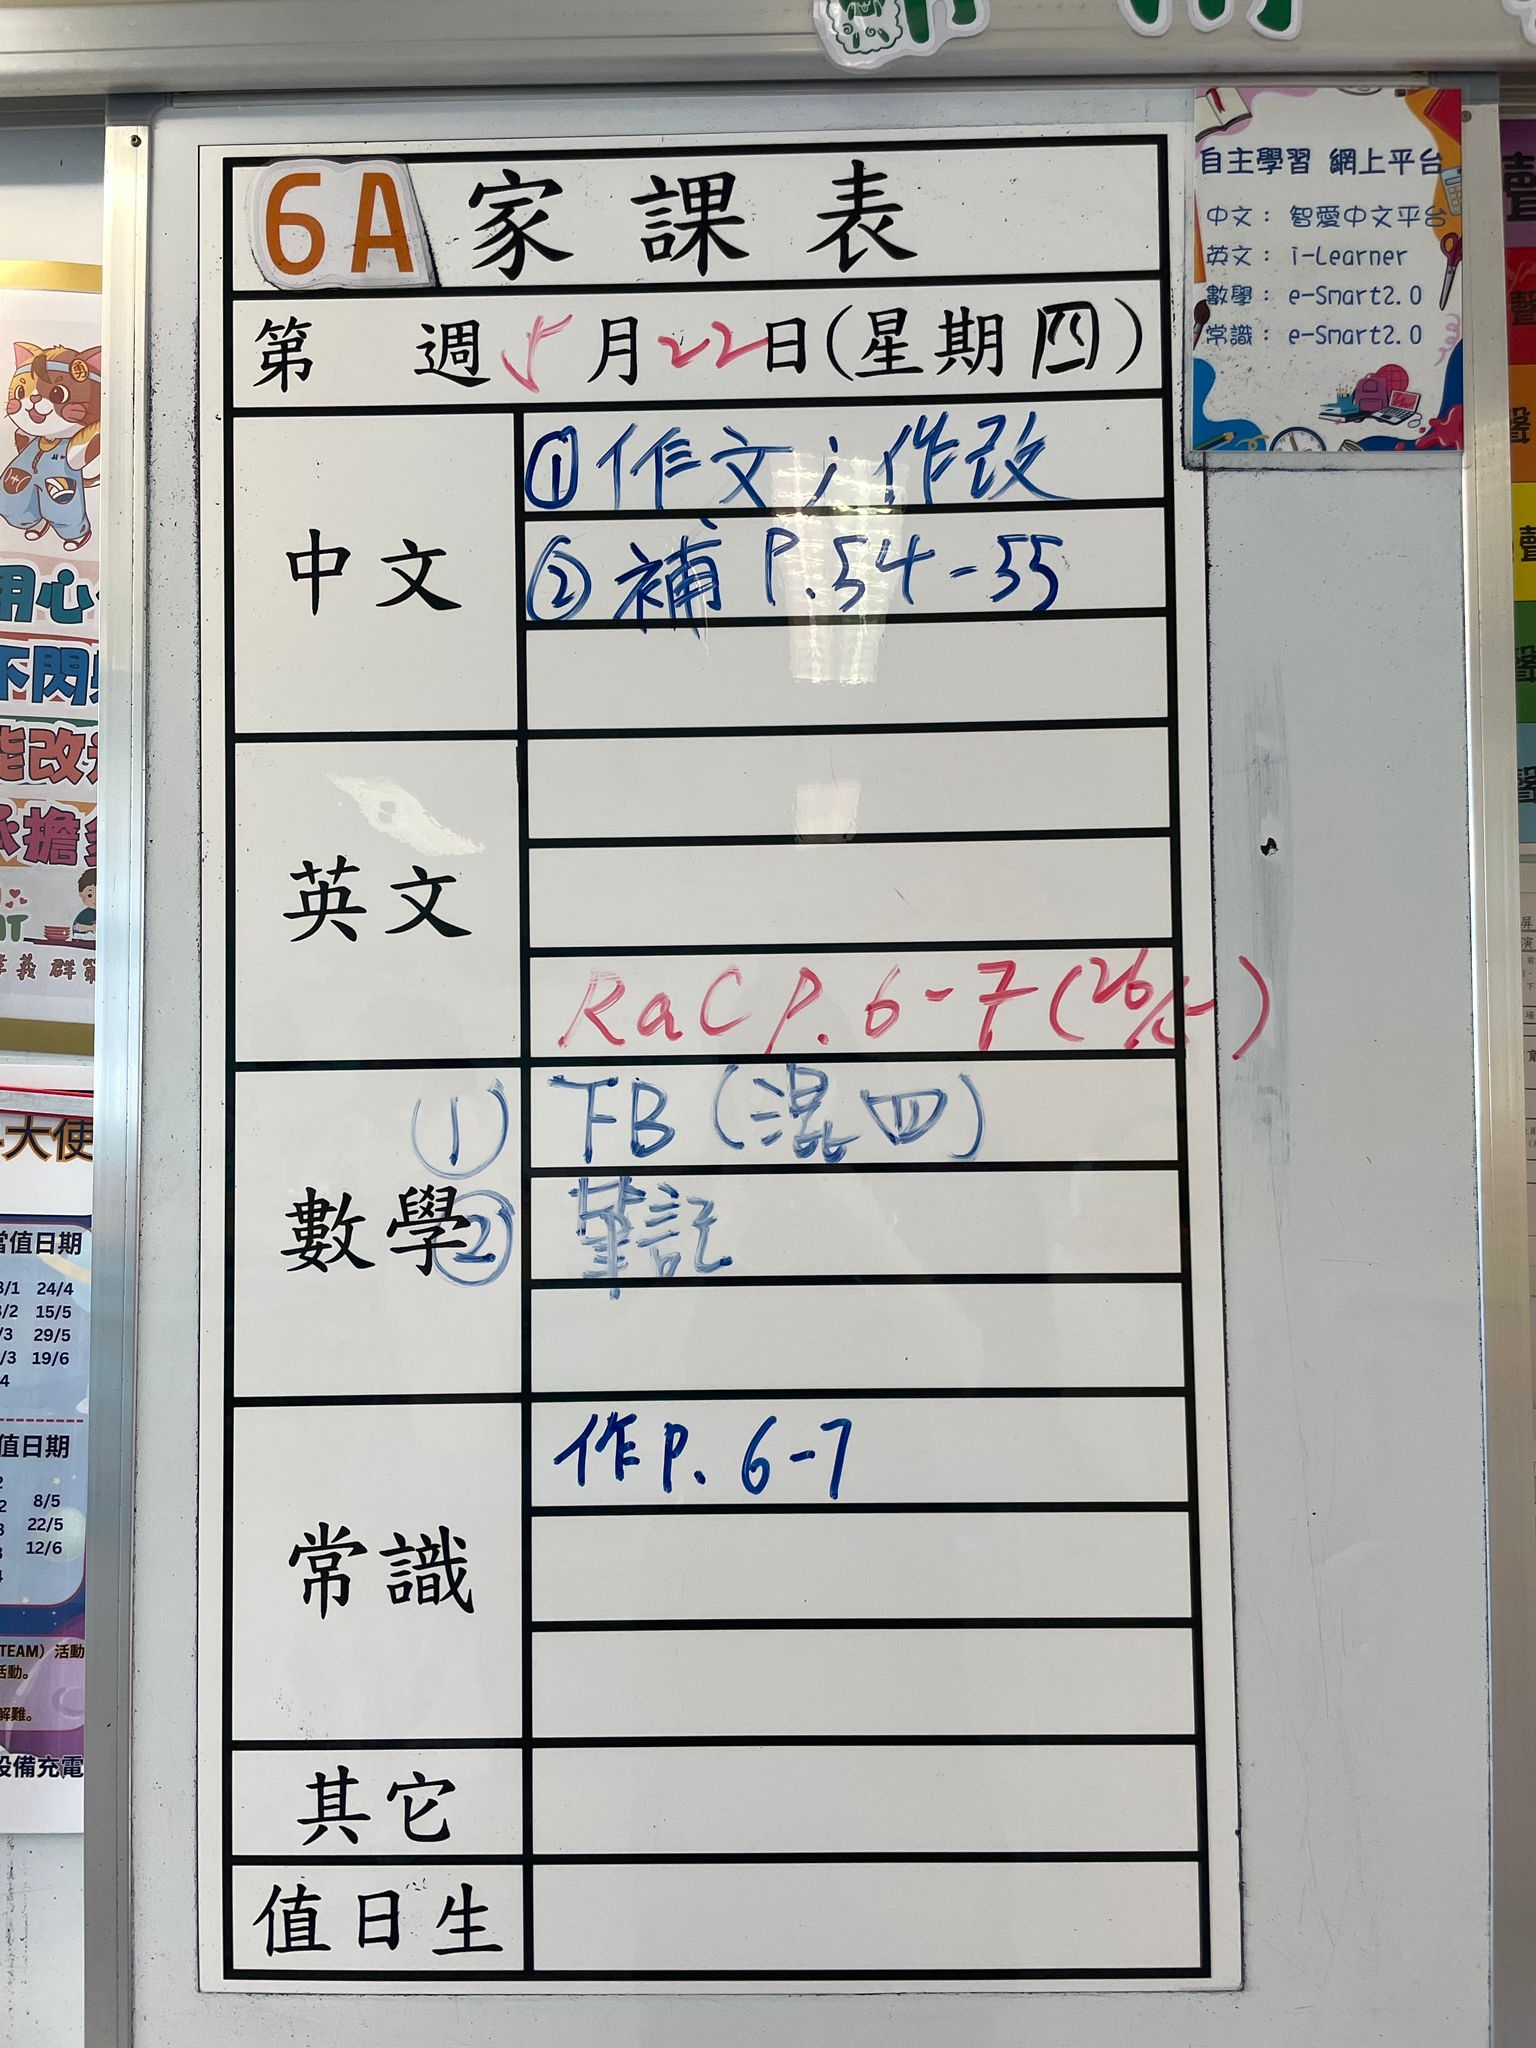 6A 家課表
第 週 5月22日(星期四)
中文
①作文;作改
②補 P.54-55
英文
RaC P.6-7 (26/5)
數學
① TB (混四)
② 筆記
常識
作 P. 6-7
其它
值日生
自主學習 網上平台
中文: 智愛中文平台
英文: i-Learner
數學: e-Smart2.0
常識: e-Smart2.0
用心
不閃
能改
承擔
大使
當值日期
24/4
15/5
29/5
19/6
值日期
8/5
22/5
12/6
TEAM）活動
活動。
解難。
設備充電